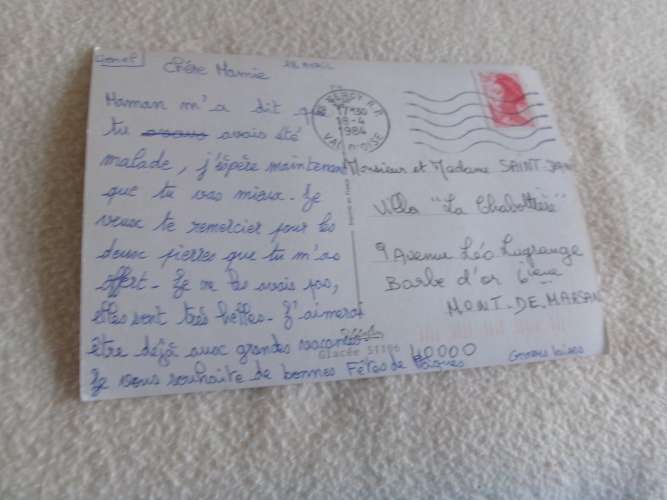 18 AVRIL
Chère Mamie
Maman m'a dit que
tu avais été
malade, j'éspère maintenant
que tu vas mieux. Je
veux te remercier pour les
deux pierres que tu m'as
offert. Je ne les avais pas,
elles sont très belles. J'aimerai
être déjà aux grandes vacances
Je vous souhaite de bonnes Fêtes de Pâques
Grosses bises
CERGY R.P.
17H30
18-4
1984
VAL D'OISE
Monsieur et Madame SAINT JEAN
Villa "La Chabottière"
9 Avenue Léo Lagrange
Barbe d'or 6ième
MONT. DE. MARSAN
40000